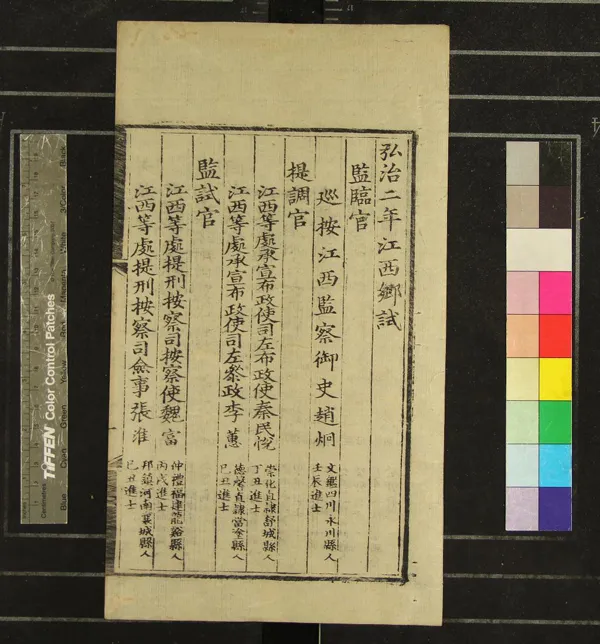 弘治二年江西鄉試
監臨官
巡按江西監察御史趙炯
文䆁四川永川縣人
壬辰進士
提調官
江西等處承宣布政使司左布政使秦民悅
崇化直隸舒城縣人
丁丑進士
江西等處承宣布政使司左叅政李蕙
德馨直隸當塗縣人
己丑進士
監試官
江西等處提刑按察司按察使魏富
仲禮福建龍谿縣人
丙戌進士
江西等處提刑按察司僉事張淮
邦鎮河南襄城縣人
己丑進士
TIFFEN Color Control Patches
Blue
Cyan
Green
Yellow
Red
Magenta
White
Black
Centimetres